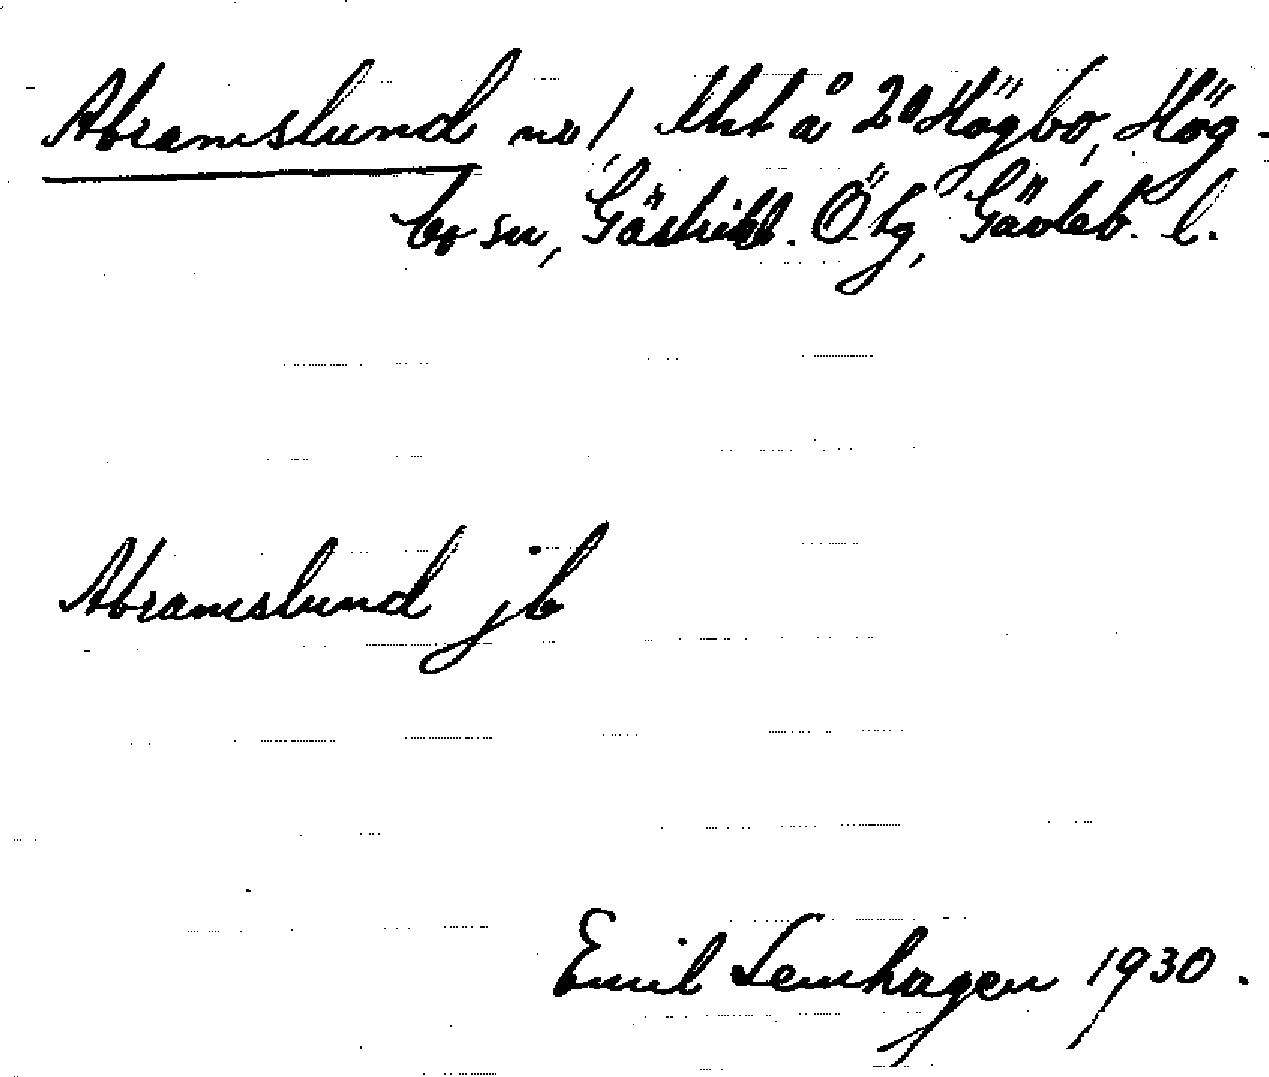 Abramslund no 1, lht å 20 Högbo, Hög-
bo sn, Gästrikl. Ö tg, Gävleb. l.
Abramslund jb
Emil Lenhagen 1930.